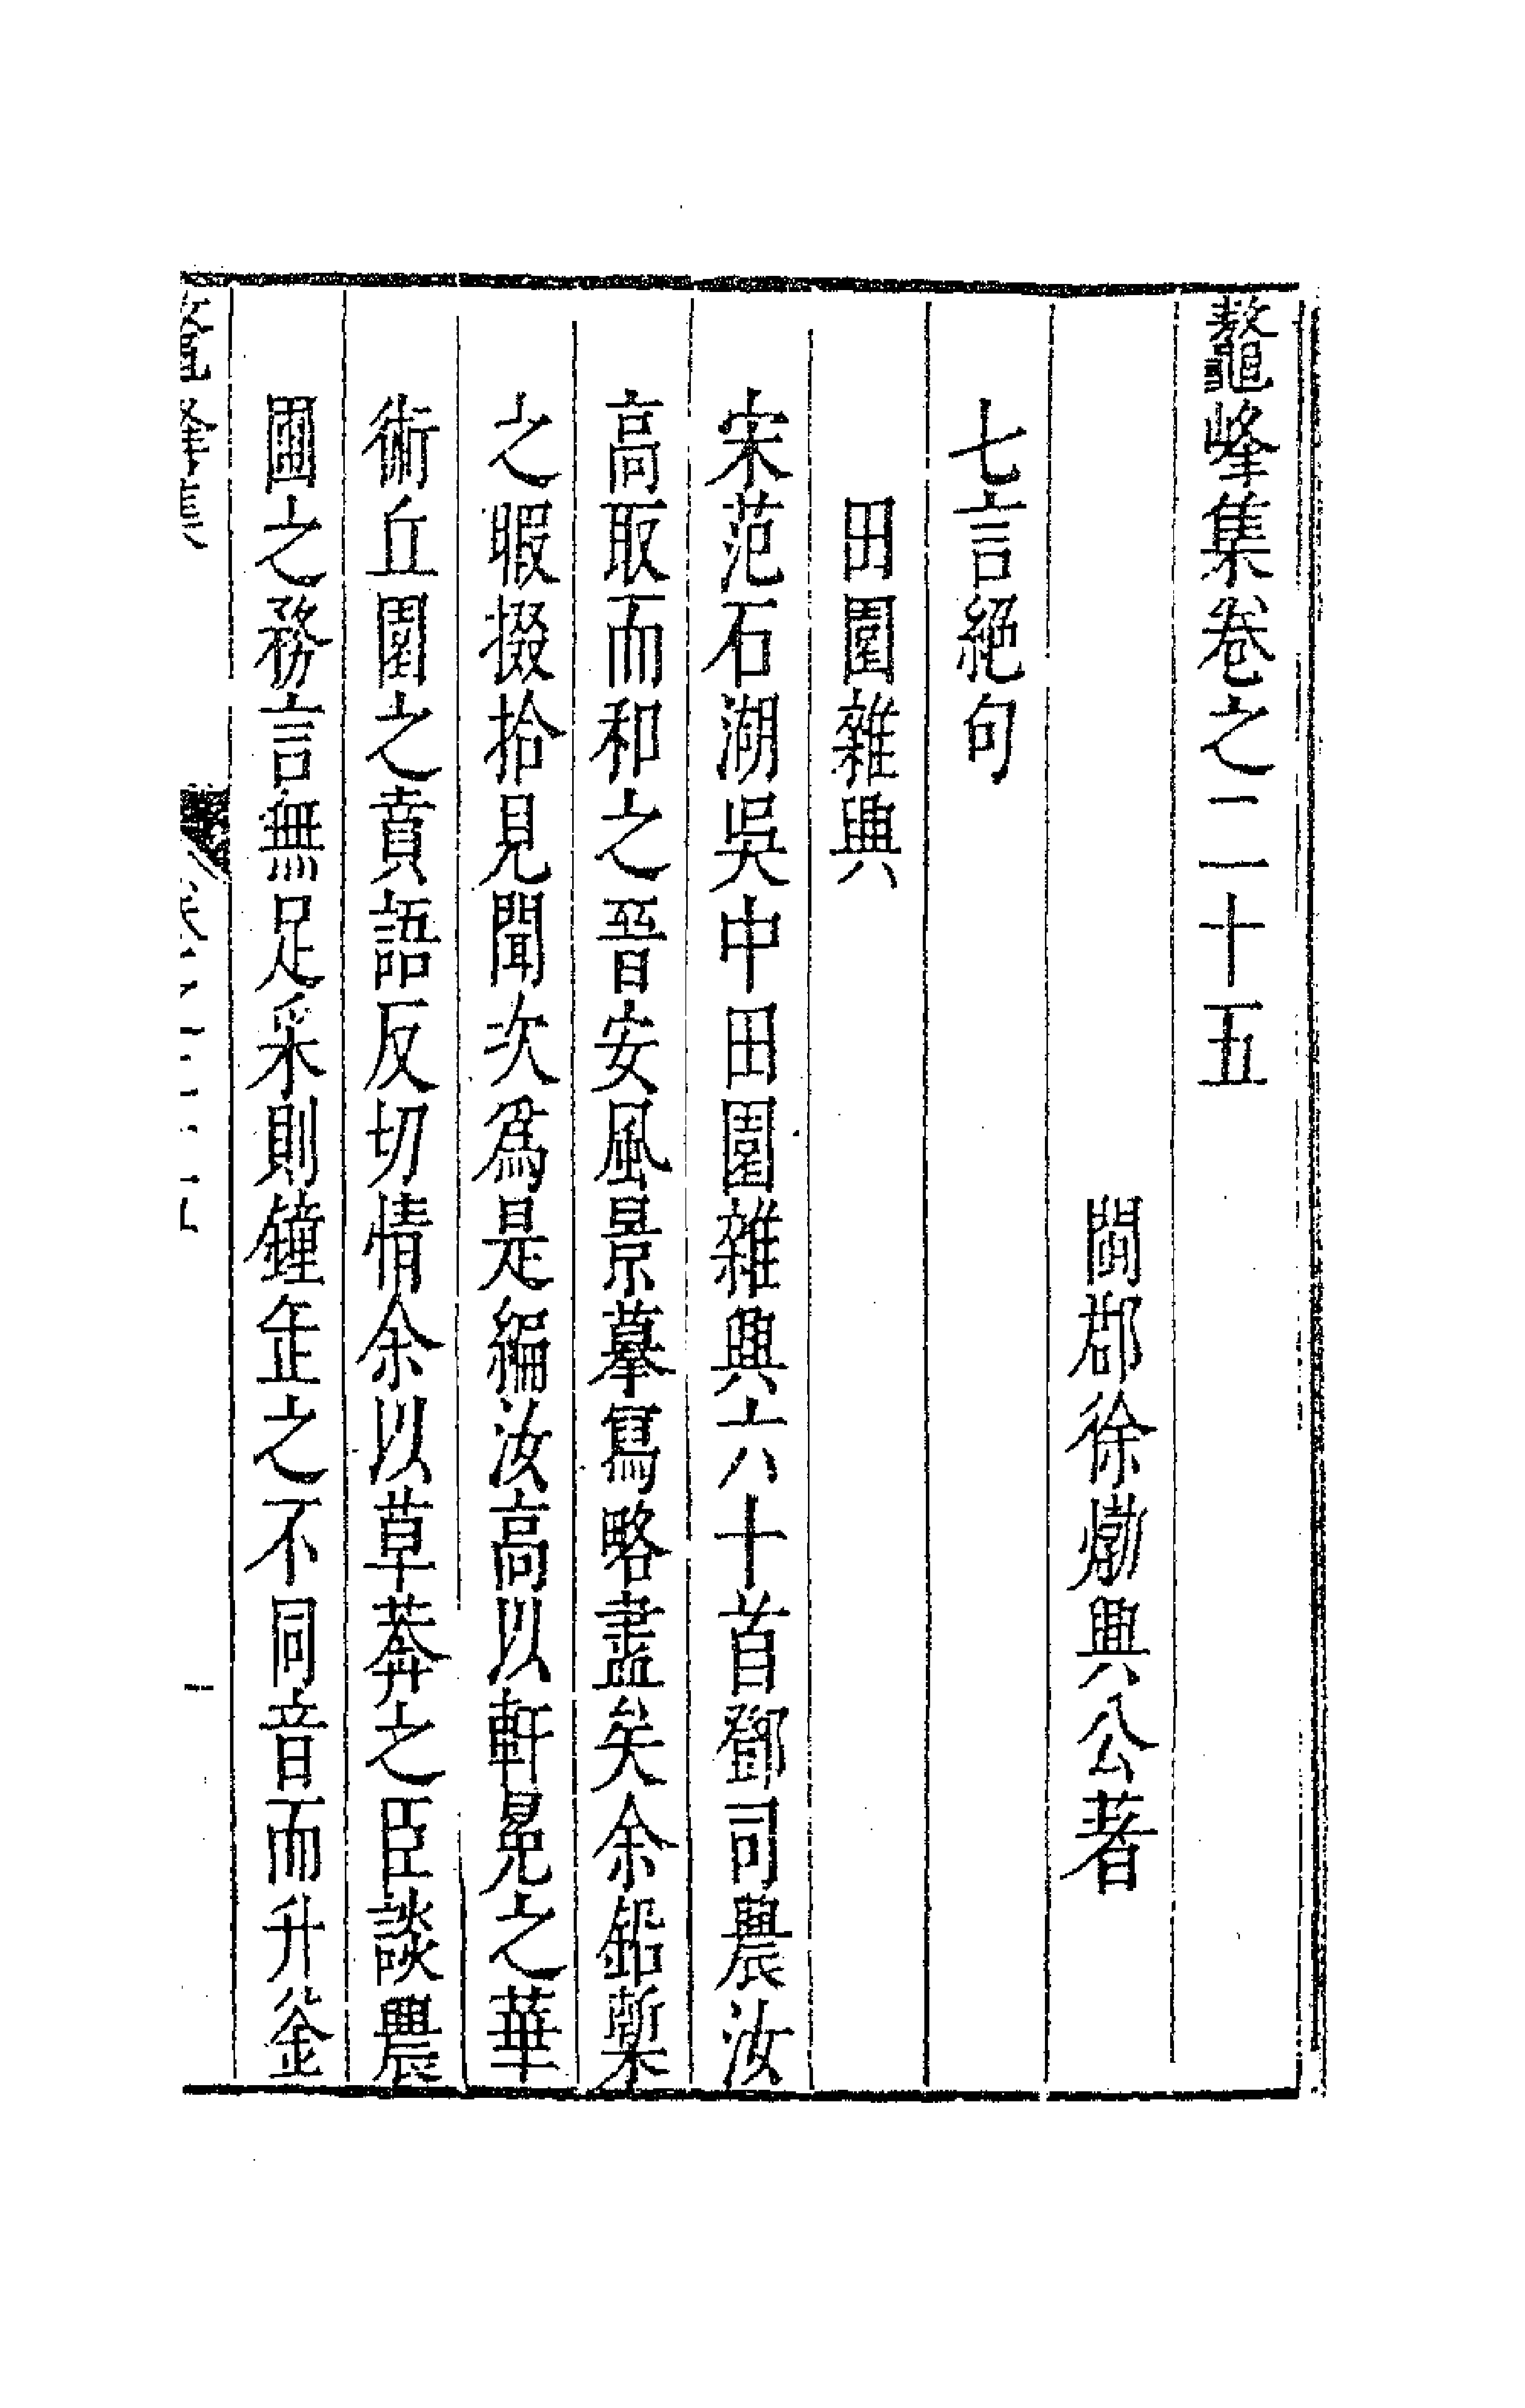 鼇峰集卷之二十五
閩郡徐𤊹興公著
七言絕句
田園雜興
宋范石湖吳中田園雜興六十首鄧司農汝
高取而和之晉安風景摹寫略盡矣余鉛槧
之暇掇拾見聞次爲是編汝高以軒冕之華
術丘園之賁語反切情余以草莽之臣談農
圃之務言無足采則鐘缶之不同音而升釜